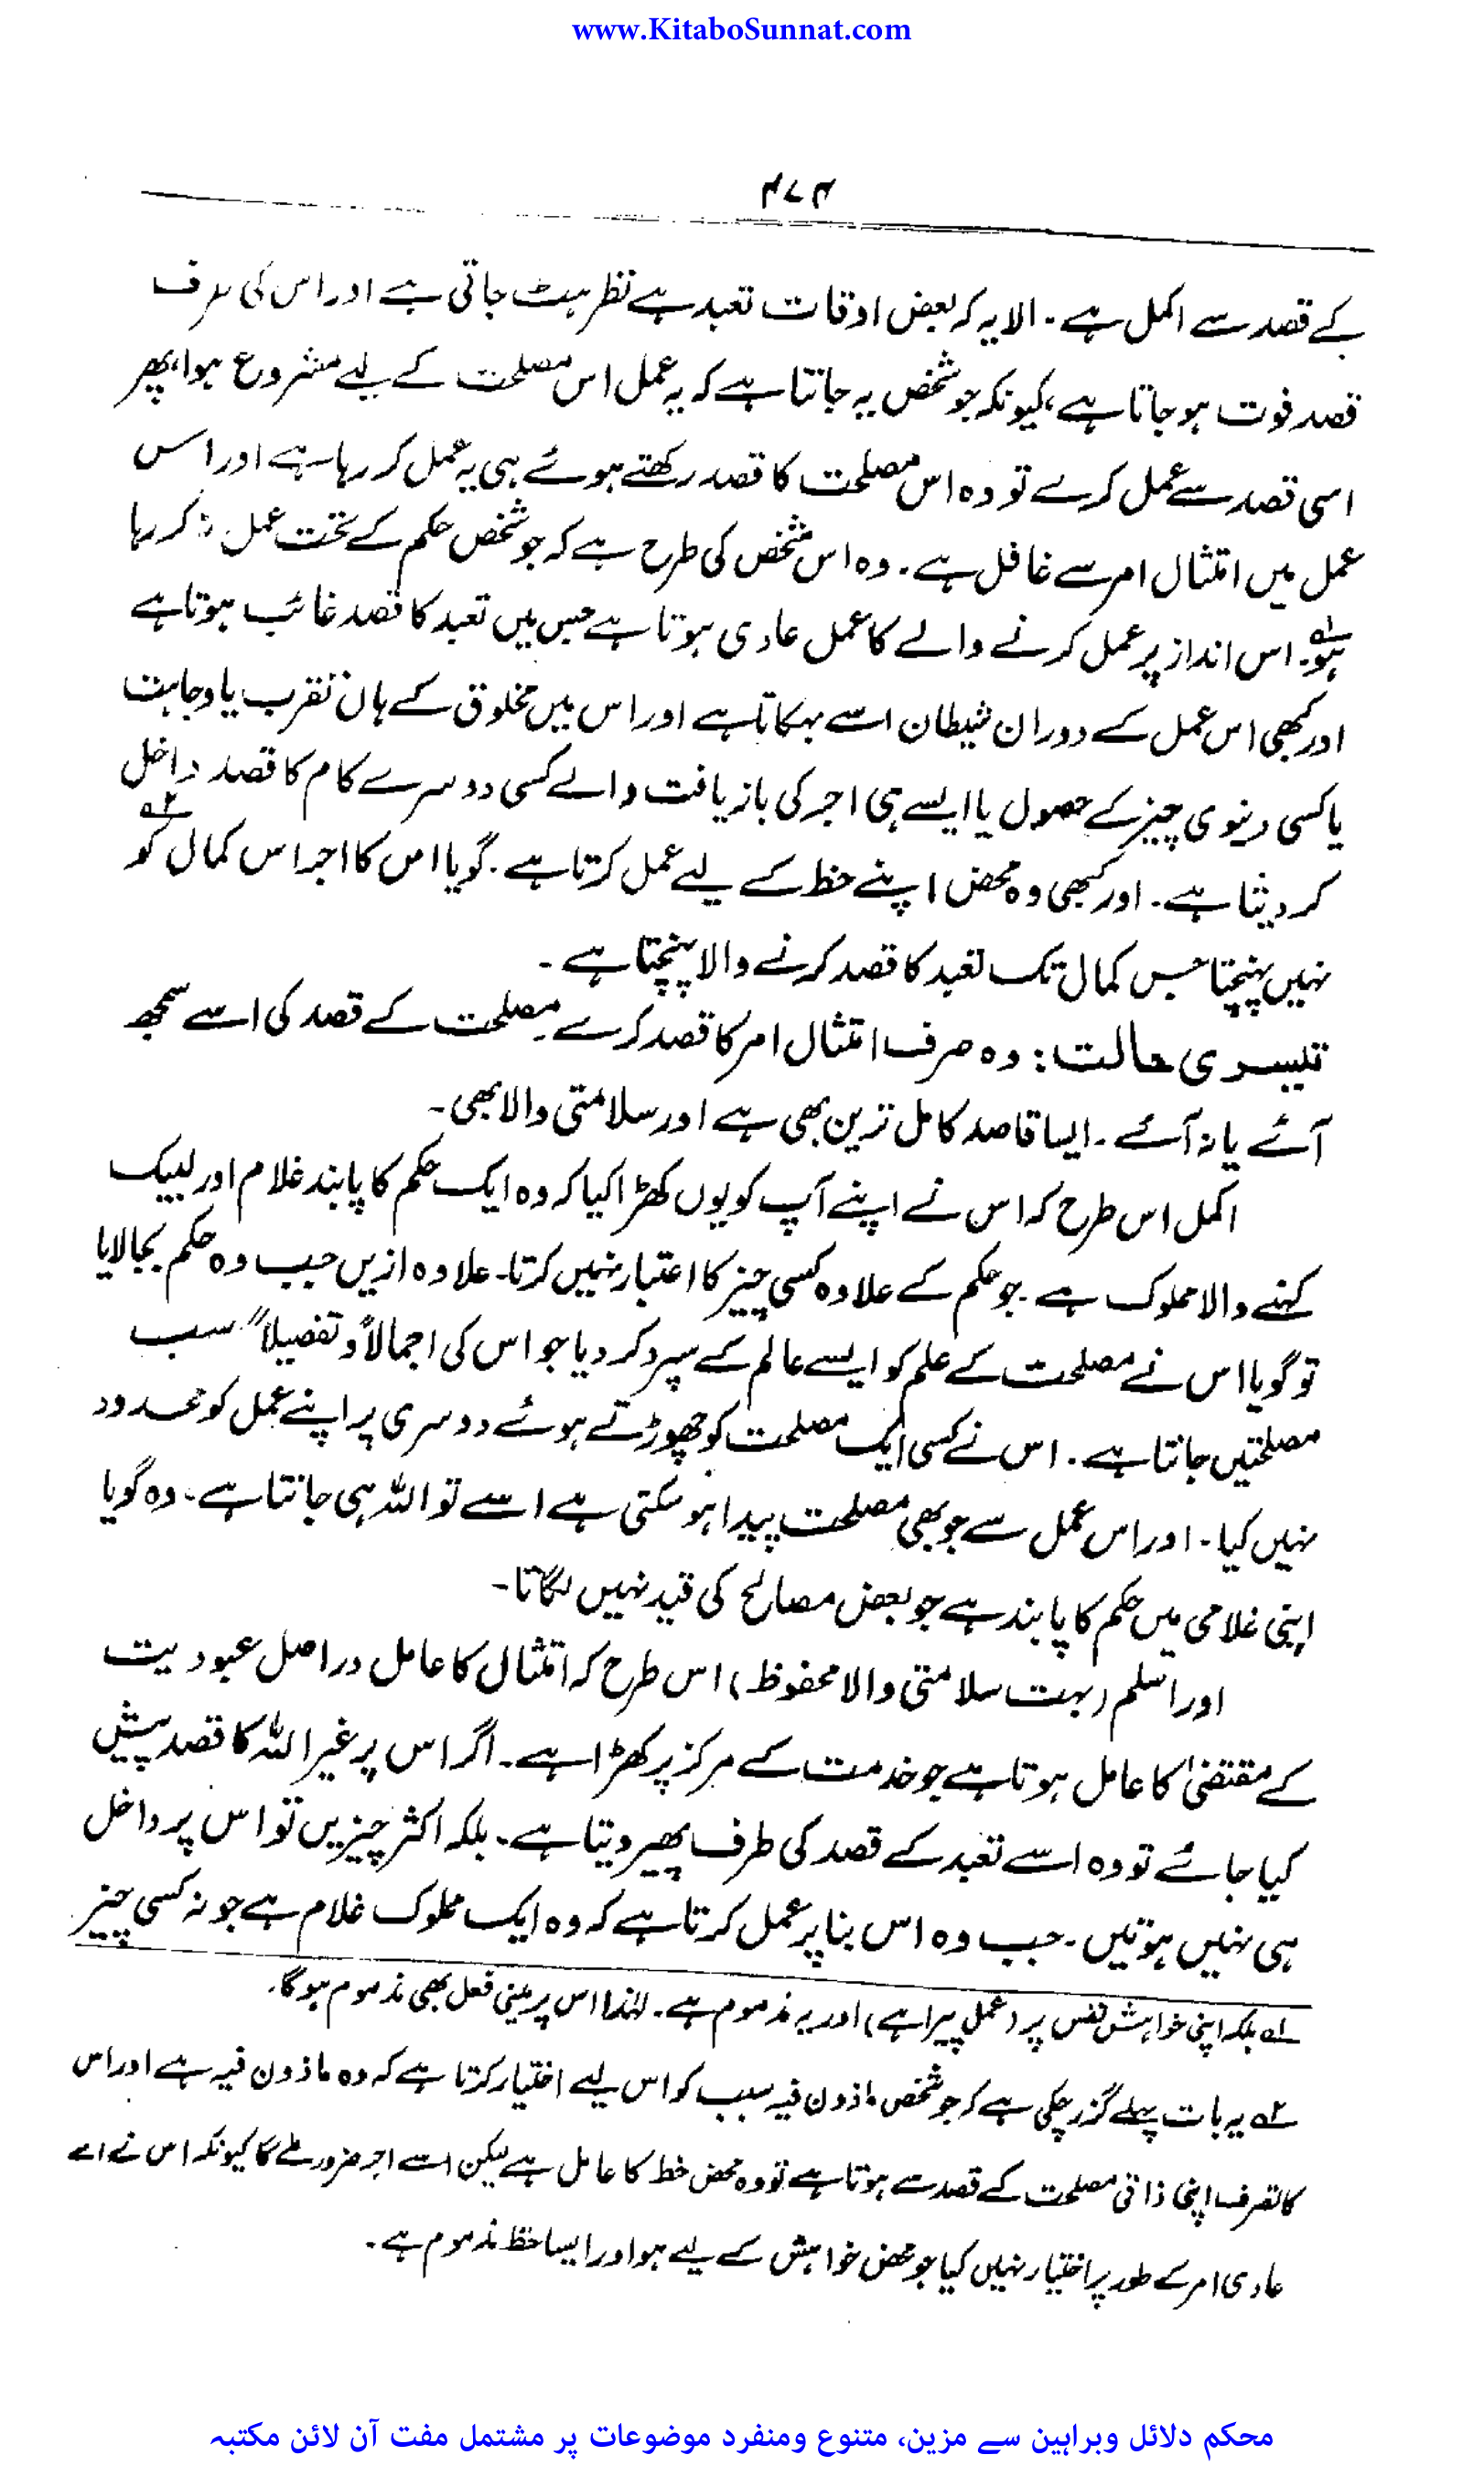 www.KitaboSunnat.com
۴۷۴
کے قصد سے اکمل ہے۔ الا یہ کہ بعض اوقات تعبد سے نظر ہٹ جاتی ہے اور اس کی طرف
قصد فوت ہو جاتا ہے، کیونکہ جو شخص یہ جانتا ہے کہ یہ عمل اس مصلحت کے لیے مشروع ہوا، پھر
اسی قصد سے عمل کرے تو وہ اس مصلحت کا قصد رکھتے ہوئے ہی یہ عمل کر رہا ہے اور اس
عمل میں امتثال امر سے غافل ہے۔ وہ اس شخص کی طرح ہے کہ جو شخص حکم کے تحت عمل نہ کر رہا
ہو۔۱؎ اس انداز پر عمل کرنے والے کا عمل عادی ہوتا ہے جس میں تعبد کا قصد غائب ہوتا ہے
اور کبھی اس عمل کے دوران شیطان اسے بہکاتا ہے اور اس میں مخلوق کے ہاں تقرب یا وجاہت
یا کسی دنیوی چیز کے حصول یا ایسے ہی اجر کی بازیافت والے کسی دوسرے کام کا قصد داخل
کر دیتا ہے۔ اور کبھی وہ محض اپنے حظ کے لیے عمل کرتا ہے۔ گویا اس کا اجر اس کمال کو۲؎
نہیں پہنچتا جس کمال تک تعبد کا قصد کرنے والا پہنچتا ہے۔
تیسری حالت: وہ صرف امتثال امر کا قصد کرے۔ مصلحت کے قصد کی اسے سمجھ
آئے یا نہ آئے۔ ایسا قاصد کامل ترین بھی ہے اور سلامتی والا بھی۔
اکمل اس طرح کہ اس نے اپنے آپ کو یوں کھڑا کیا کہ وہ ایک حکم کا پابند غلام اور لبیک
کہنے والا مملوک ہے۔ جو حکم کے علاوہ کسی چیز کا اعتبار نہیں کرتا۔ علاوہ ازیں جب وہ حکم بجا لایا
تو گویا اس نے مصلحت کے علم کو ایسے عالم کے سپرد کر دیا جو اس کی اجمالاً و تفصیلاً سب
مصلحتیں جانتا ہے۔ اس نے کسی ایک مصلحت کو چھوڑتے ہوئے دوسری پر اپنے عمل کو محدود
نہیں کیا۔ اور اس عمل سے جو بھی مصلحت پیدا ہو سکتی ہے اسے تو اللہ ہی جانتا ہے۔ وہ گویا
اپنی غلامی میں حکم کا پابند ہے جو بعض مصالح کی قید نہیں لگاتا۔
اور اسلم (بہت سلامتی والا محفوظ) اس طرح کہ امتثال کا عامل دراصل عبودیت
کے مقتضیٰ کا عامل ہوتا ہے جو خدمت کے مرکز پر کھڑا ہے۔ اگر اس پر غیر اللہ کا قصد پیش
کیا جائے تو وہ اسے تعبد کے قصد کی طرف پھیر دیتا ہے۔ بلکہ اکثر چیزیں تو اس پر داخل
ہی نہیں ہوتیں۔ جب وہ اس بنا پر عمل کرتا ہے کہ وہ ایک مملوک غلام ہے جو نہ کسی چیز
۱؎ بلکہ اپنی خواہش نفس پر (عمل پیرا ہے) اور یہ مذموم ہے۔ لہٰذا اس پر مبنی فعل بھی مذموم ہوگا۔
۲؎ یہ بات پہلے گزر چکی ہے کہ جو شخص ماذون فیہ سبب کو اس لیے اختیار کرتا ہے کہ وہ ماذون فیہ ہے اور اس
کا تصرف اپنی ذاتی مصلحت کے قصد سے ہوتا ہے تو وہ محض حظ کا عامل ہے لیکن اسے اجر ضرور ملے گا کیونکہ اس نے اسے
عادی امر کے طور پر اختیار نہیں کیا جو محض خواہش کے لیے ہو اور ایسا حظ مذموم ہے۔
محکم دلائل وبراہین سے مزین، متنوع ومنفرد موضوعات پر مشتمل مفت آن لائن مکتبہ